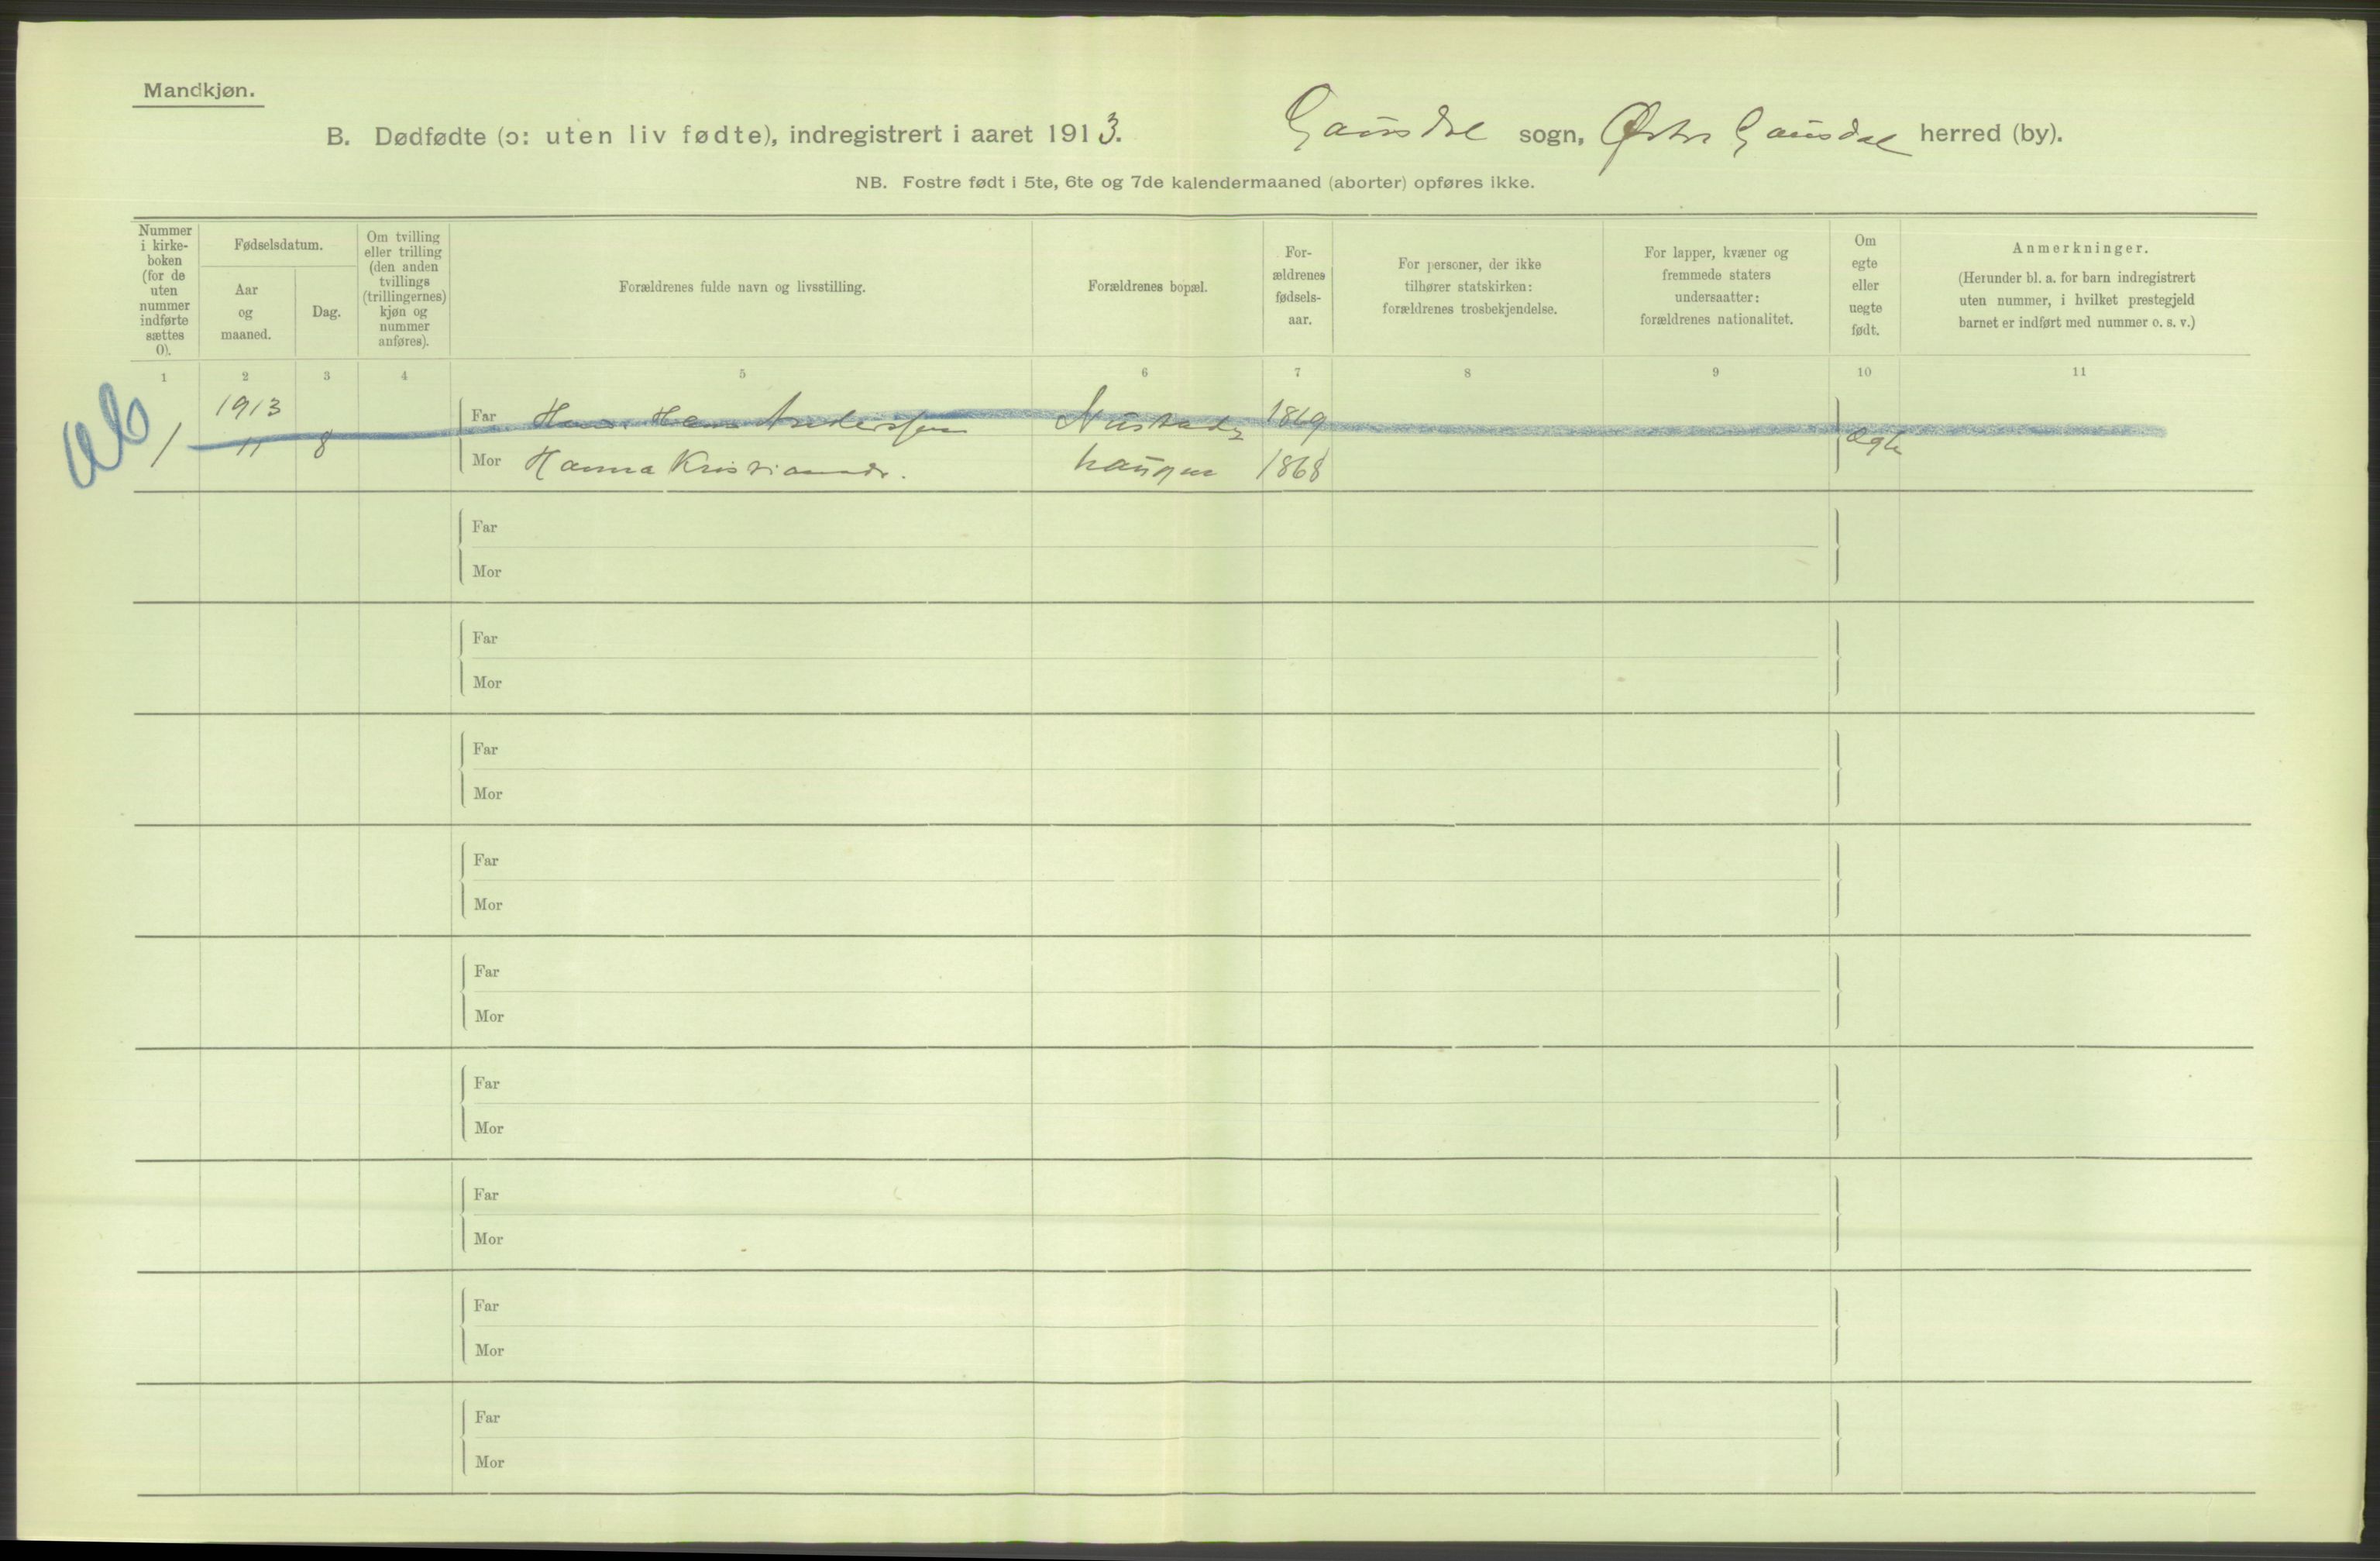 Mandkjøn.
B. Dødfødte (ɔ: uten liv fødte), indregistrert i aaret 1913. Gausdal sogn, Østre Gausdal herred (by).
NB. Fostre født i 5te, 6te og 7de kalendermaaned (aborter) opføres ikke.
Nummer
i kirke-
boken
(for de
uten
nummer
indførte
sættes
0).
Fødselsdatum.
Aar
og
maaned.
Dag.
Om tvilling
eller trilling
(den anden
tvillings
(trillingernes)
kjøn og
nummer
anføres).
Forældrenes fulde navn og livsstilling.
Forældrenes bopæl.
For-
ældrenes
fødsels-
aar.
For personer, der ikke
tilhører statskirken:
forældrenes trosbekjendelse.
For lapper, kvæner og
fremmede staters
undersaatter:
forældrenes nationalitet.
Om
egte
eller
uegte
født.
Anmerkninger.
(Herunder bl. a. for barn indregistrert
uten nummer, i hvilket prestegjeld
barnet er indført med nummer o. s. v.)
1 2 3 4 5 6 7 8 9 10 11
1913
1 11 8 Far Hans Andersen 1869 Ægte
Mor Hanna Kristiansdr. haugen 1868
Far
Mor
Far
Mor
Far
Mor
Far
Mor
Far
Mor
Far
Mor
Far
Mor
Far
Mor
Far
Mor